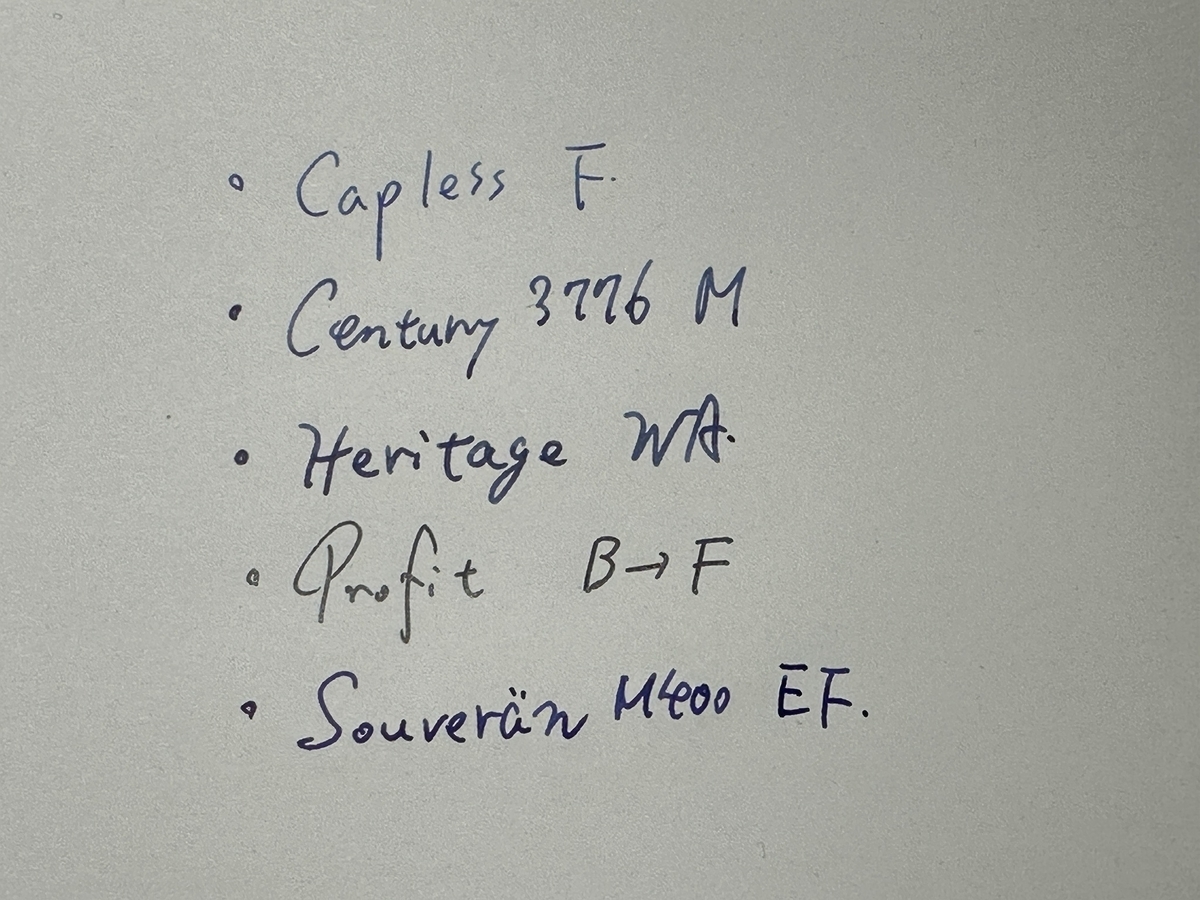 • Capless F.
• Century 3776 M
• Heritage WA.
• Profit B→F
• Souverän M400 EF.